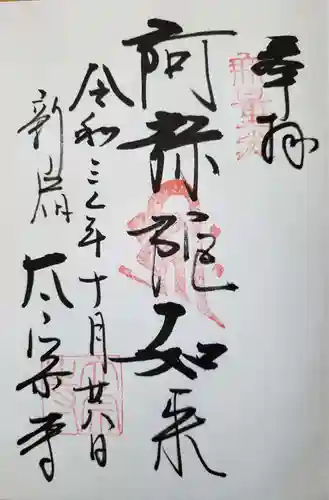 奉拝
阿弥陀如来
令和三年十月廿八日
新宿
太宗寺